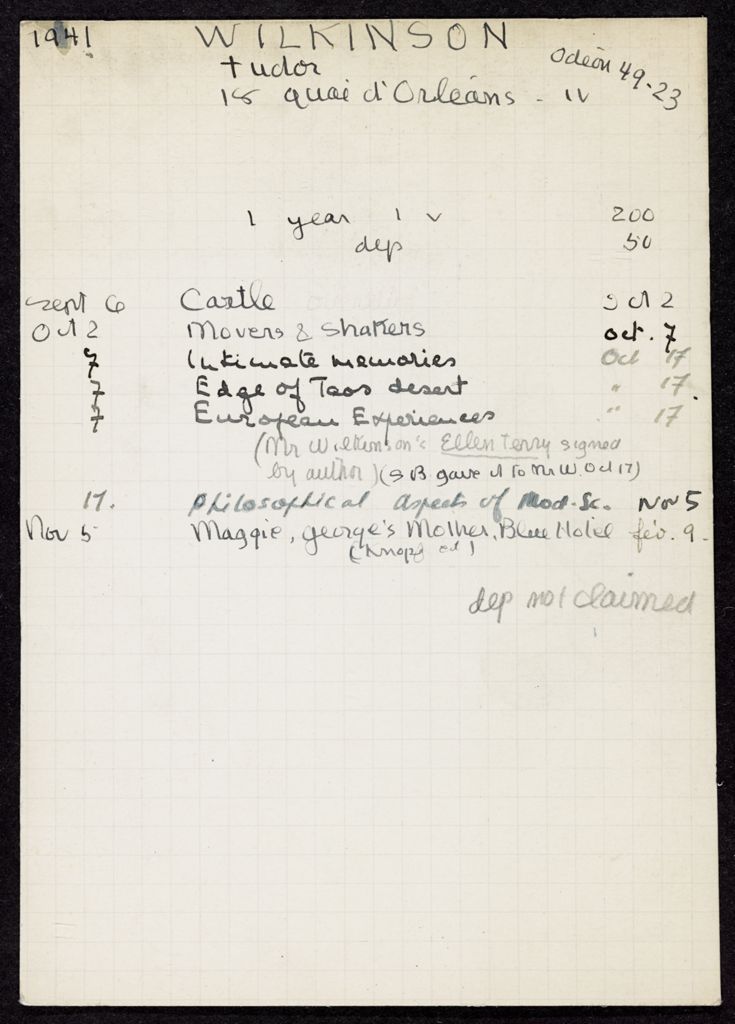 1941 WILKINSON
Tudor Odéon 49-23
18 quai d'Orléans - IV
1 year 1 v 200
dep 50
Sept 6 Castle Oct 2
Oct 2 Movers & Shakers Oct. 7
7 Intimate memories Oct 17
7 Edge of Taos desert " 17.
7 European Experiences " 17
(Mr Wilkinson's Ellen Terry signed
by author) (SB gave it to Mr W. Oct 17)
17. Philosophical Aspects of Mod. Sc. Nov 5
Nov 5 Maggie, George's Mother, Blue Hotel fév. 9.
(Knopf ed)
dep not claimed